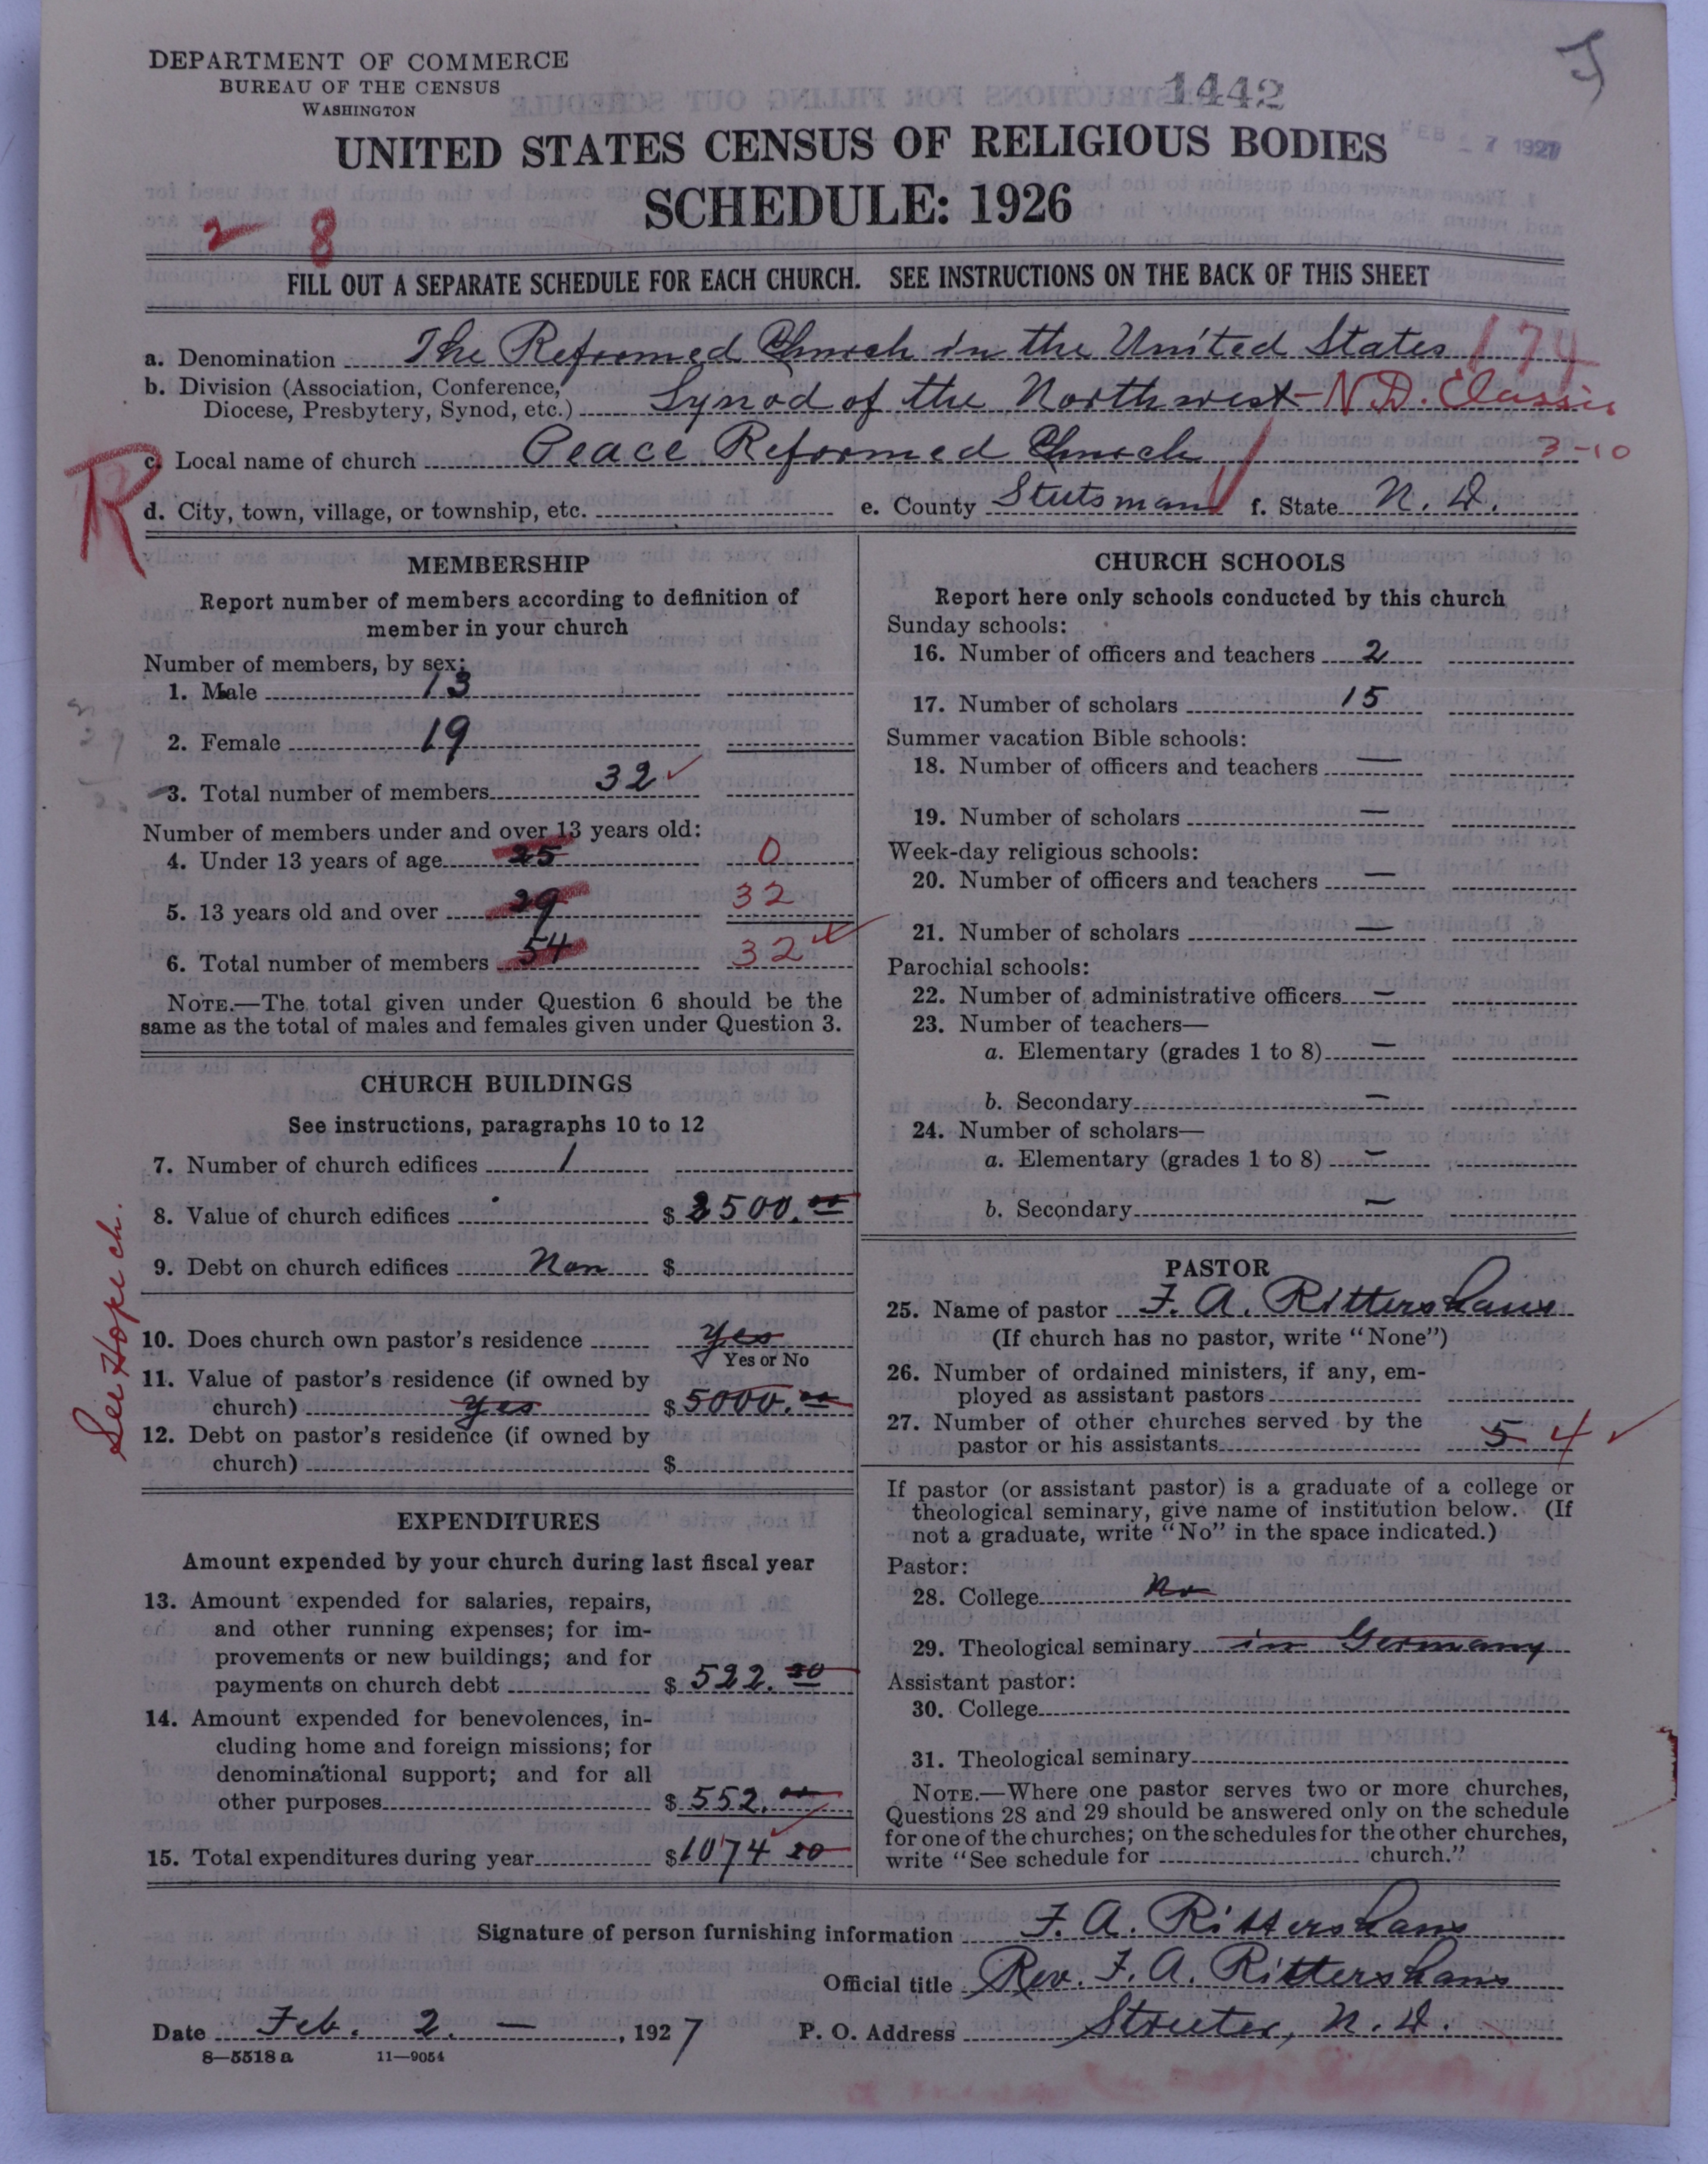 DEPARTMENT OF COMMERCE
BUREAU OF THE CENSUS
WASHINGTON
1442
FEB - 7 1927
UNITED STATES CENSUS OF RELIGIOUS BODIES
SCHEDULE: 1926
2 8
FILL OUT A SEPARATE SCHEDULE FOR EACH CHURCH. SEE INSTRUCTIONS ON THE BACK OF THIS SHEET
a. Denomination The Reformed Church in the United States 174
b. Division (Association, Conference,
Diocese, Presbytery, Synod, etc.) Synod of the Northwest - N.D. Classis
c. Local name of church Peace Reformed Church 3-10
R
d. City, town, village, or township, etc. e. County Stutsman f. State N. D.
MEMBERSHIP
Report number of members according to definition of
member in your church
Number of members, by sex:
1. Male 13
2. Female 19
3. Total number of members 32
Number of members under and over 13 years old:
4. Under 13 years of age 25 0
5. 13 years old and over 29 32
6. Total number of members 54 32
NOTE.—The total given under Question 6 should be the
same as the total of males and females given under Question 3.
CHURCH BUILDINGS
See instructions, paragraphs 10 to 12
7. Number of church edifices 1
8. Value of church edifices $ 3500.00
9. Debt on church edifices Non $
See Hope ch.
10. Does church own pastor's residence yes
Yes or No
11. Value of pastor's residence (if owned by
church) yes $ 5000.00
12. Debt on pastor's residence (if owned by
church) $
EXPENDITURES
Amount expended by your church during last fiscal year
13. Amount expended for salaries, repairs,
and other running expenses; for im-
provements or new buildings; and for
payments on church debt $ 522.20
14. Amount expended for benevolences, in-
cluding home and foreign missions; for
denominational support; and for all
other purposes $ 552.00
15. Total expenditures during year $ 1074 20
CHURCH SCHOOLS
Report here only schools conducted by this church
Sunday schools:
16. Number of officers and teachers 2
17. Number of scholars 15
Summer vacation Bible schools:
18. Number of officers and teachers —
19. Number of scholars —
Week-day religious schools:
20. Number of officers and teachers —
21. Number of scholars —
Parochial schools:
22. Number of administrative officers —
23. Number of teachers—
a. Elementary (grades 1 to 8) —
b. Secondary —
24. Number of scholars—
a. Elementary (grades 1 to 8) —
b. Secondary —
PASTOR
25. Name of pastor F. A. Rittershaus
(If church has no pastor, write "None")
26. Number of ordained ministers, if any, em-
ployed as assistant pastors
27. Number of other churches served by the
pastor or his assistants 5 4
If pastor (or assistant pastor) is a graduate of a college or
theological seminary, give name of institution below. (If
not a graduate, write "No" in the space indicated.)
Pastor:
28. College No
29. Theological seminary in Germany
Assistant pastor:
30. College
31. Theological seminary
NOTE.—Where one pastor serves two or more churches,
Questions 28 and 29 should be answered only on the schedule
for one of the churches; on the schedules for the other churches,
write "See schedule for church."
Signature of person furnishing information F. A. Rittershaus
Official title Rev. F. A. Rittershaus
Date Feb. 2. — , 1927 P. O. Address Streeter, N. D.
8—5518 a 11—9054